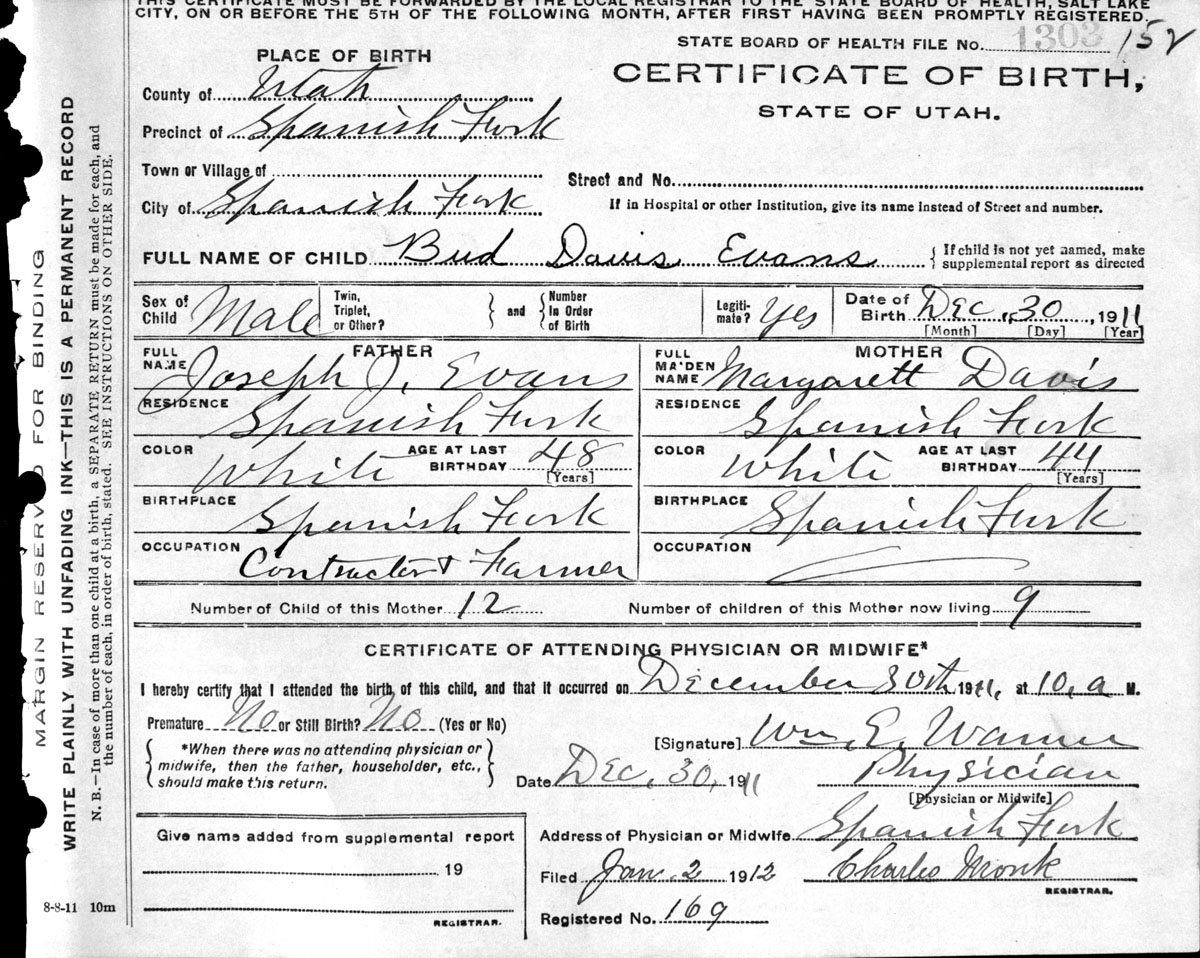 THIS CERTIFICATE MUST BE FORWARDED BY THE LOCAL REGISTRAR TO THE STATE BOARD OF HEALTH, SALT LAKE
CITY, ON OR BEFORE THE 5TH OF THE FOLLOWING MONTH, AFTER FIRST HAVING BEEN PROMPTLY REGISTERED.
STATE BOARD OF HEALTH FILE No. 1303 152
PLACE OF BIRTH
CERTIFICATE OF BIRTH,
STATE OF UTAH.
County of Utah
Precinct of Spanish Fork
Town or Village of
Street and No.
City of Spanish Fork
If in Hospital or other Institution, give its name instead of Street and number.
FULL NAME OF CHILD Bud Davis Evans { If child is not yet named, make supplemental report as directed
Sex of Child Male
Twin, Triplet, or Other? } and { Number In Order of Birth
Legitimate? Yes
Date of Birth Dec. 30, 1911
[Month] [Day] [Year]
FATHER
FULL NAME Joseph J. Evans
RESIDENCE Spanish Fork
COLOR White AGE AT LAST BIRTHDAY 48 [Years]
BIRTHPLACE Spanish Fork
OCCUPATION Contractor & Farmer
MOTHER
FULL MAIDEN NAME Margarett Davis
RESIDENCE Spanish Fork
COLOR White AGE AT LAST BIRTHDAY 44 [Years]
BIRTHPLACE Spanish Fork
OCCUPATION
Number of Child of this Mother 12 Number of children of this Mother now living 9
CERTIFICATE OF ATTENDING PHYSICIAN OR MIDWIFE*
I hereby certify that I attended the birth of this child, and that it occurred on December 30th 1911, at 10, a M.
Premature No or Still Birth? No (Yes or No)
{ *When there was no attending physician or
midwife, then the father, householder, etc.,
should make this return. }
[Signature] Wm E. Warner
Date Dec, 30, 1911 Physician
[Physician or Midwife]
Give name added from supplemental report
19
REGISTRAR.
Address of Physician or Midwife Spanish Fork
Filed Jan. 2 1912 Charles Monk
REGISTRAR.
Registered No. 169
8-8-11 10m
MARGIN RESERVED FOR BINDING
WRITE PLAINLY WITH UNFADING INK—THIS IS A PERMANENT RECORD
N. B.—In case of more than one child at a birth, a SEPARATE RETURN must be made for each, and
the number of each, in order of birth, stated. SEE INSTRUCTIONS ON OTHER SIDE.